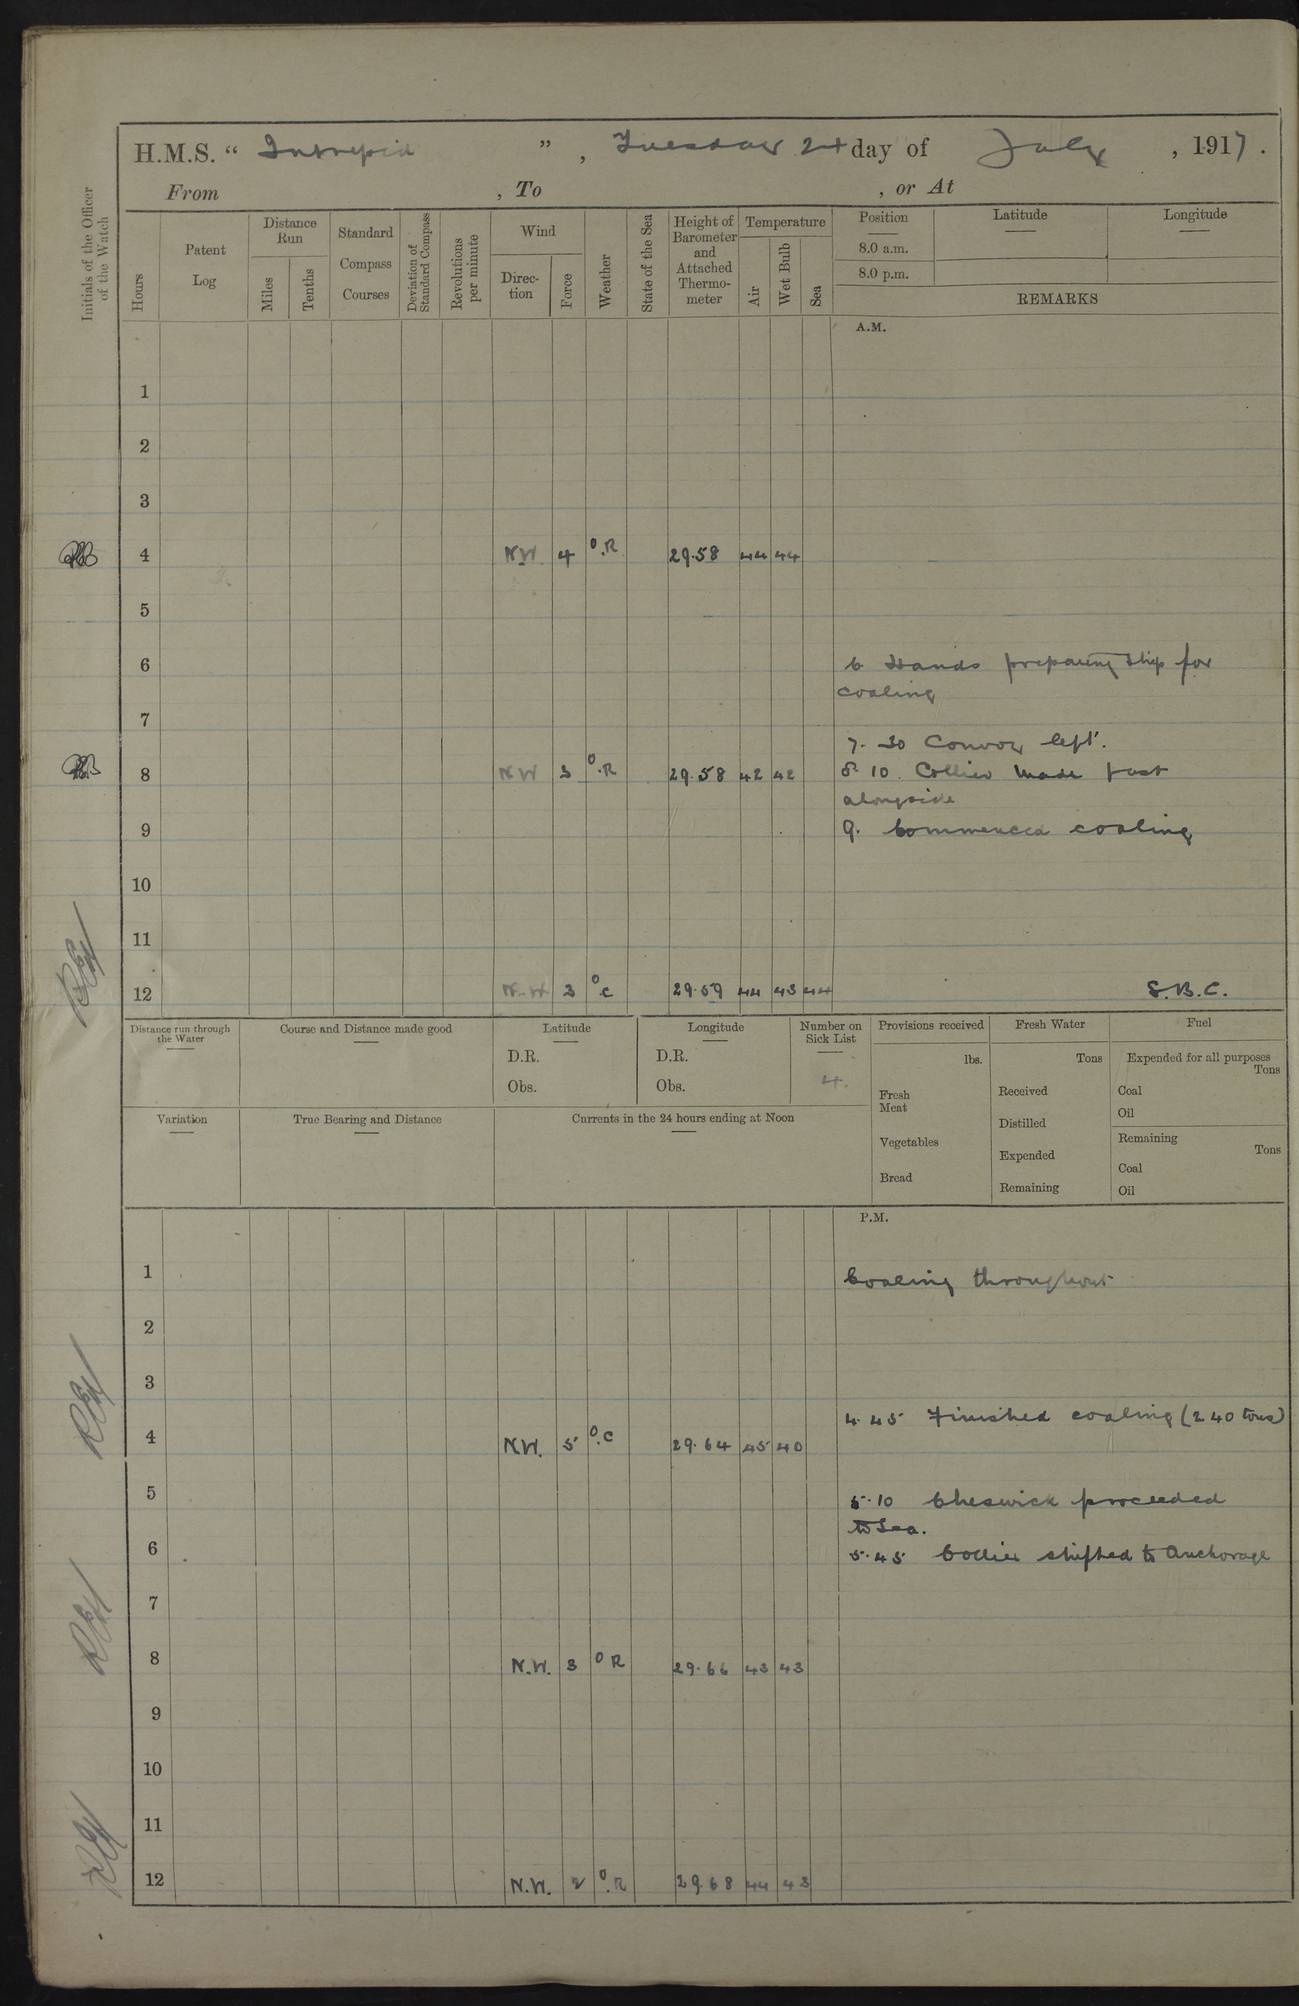 H.M.S. “ Intrepid ” , Tuesday 24 day of July , 1917 .
From , To , or At
Initials of the Officer of the Watch
Hours
Patent Log
Distance Run
Miles
Tenths
Standard Compass Courses
Deviation of Standard Compass
Revolutions per minute
Wind
Direc-tion
Force
Weather
State of the Sea
Height of Barometer and Attached Thermo-meter
Temperature
Air
Wet Bulb
Sea
Position
8.0 a.m.
8.0 p.m.
Latitude
Longitude
REMARKS
A.M.
1
2
3
4 N.W. 4 O.R 29.58 44 44
5
6 6 Hands preparing ship for
coaling
7
7.30 Convoy left.
8 NW 3 O.R 29.58 42 42 8 10. Collier made fast
alongside
9 9. Commenced coaling
10
11
12 N.W 3 O.C 29.59 44 43 44 S.B.C.
Distance run through the Water
Course and Distance made good
Latitude
D.R.
Obs.
Longitude
D.R.
Obs.
Number on Sick List
4.
Provisions received
lbs.
Fresh Meat
Vegetables
Bread
Fresh Water
Tons
Received
Distilled
Expended
Remaining
Fuel
Expended for all purposes
Tons
Coal
Oil
Remaining
Tons
Coal
Oil
Variation
True Bearing and Distance
Currents in the 24 hours ending at Noon
P.M.
1 Coaling throughout
2
3
4.45 Finished coaling (240 tons)
4 N.W. 5 O.C 29.64 45 40
5 5.10 Cheswick proceeded
to Sea.
6 5.45 Collier shifted to Anchorage
7
8 N.W. 3 O R 29.66 43 43
9
10
11
12 N.W. 2 O.R 29.68 44 43